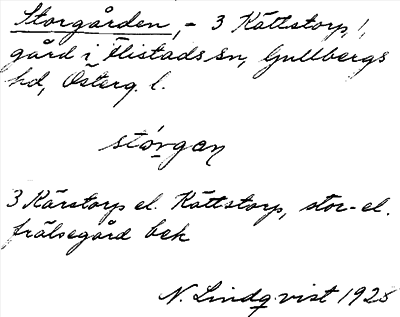 Storgården, – 3 Kättstorp, 1,
gård i Flistads sn, Gullbergs
hd, Österg. l.
stórgan
3 Kärstorp el. Kättstorp, stor- el.
frälsegård bek
N. Lindqvist 1925